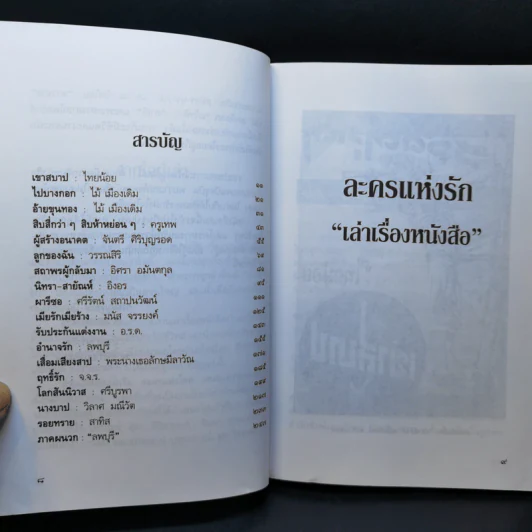 สารบัญ
เขาสบาป : ไทยน้อย ๑๑
ไปบางกอก : ไม้ เมืองเดิม ๒๑
อ้ายขุนทอง : ไม้ เมืองเดิม ๓๑
สิบสี่กว่า ๆ สิบห้าหย่อน ๆ : ครูเทพ ๔๓
ผู้สร้างอนาคต : จันตรี ศิริบุญรอด ๕๕
ลูกของฉัน : วรรณสิริ ๖๑
สถาพรผู้กลับมา : อิศรา อมันตกุล ๘๑
นิทรา-สายัณห์ : อิงอร ๙๕
ผารีซอ : ศรีรัตน์ สถาปนวัฒน์ ๑๑๑
เมียรักเมียร้าง : มนัส จรรยงค์ ๑๒๕
รับประกันแต่งงาน : อ.ร.ด.
อำนาจรัก : ลพบุรี ๑๕๕
เสื่อมเสียงสาป : พระนางเธอลักษมีลาวัณ ๑๗๑
ฤทธิ์รัก : จ.จ.ร.
โลกสันนิวาส : ศรีบูรพา
นางบาป : วิลาศ มณีวัต
รอยทราย : สาทิส
ภาคผนวก : "ลพบุรี"
๘
ละครแห่งรัก
"เล่าเรื่องหนังสือ"
๙